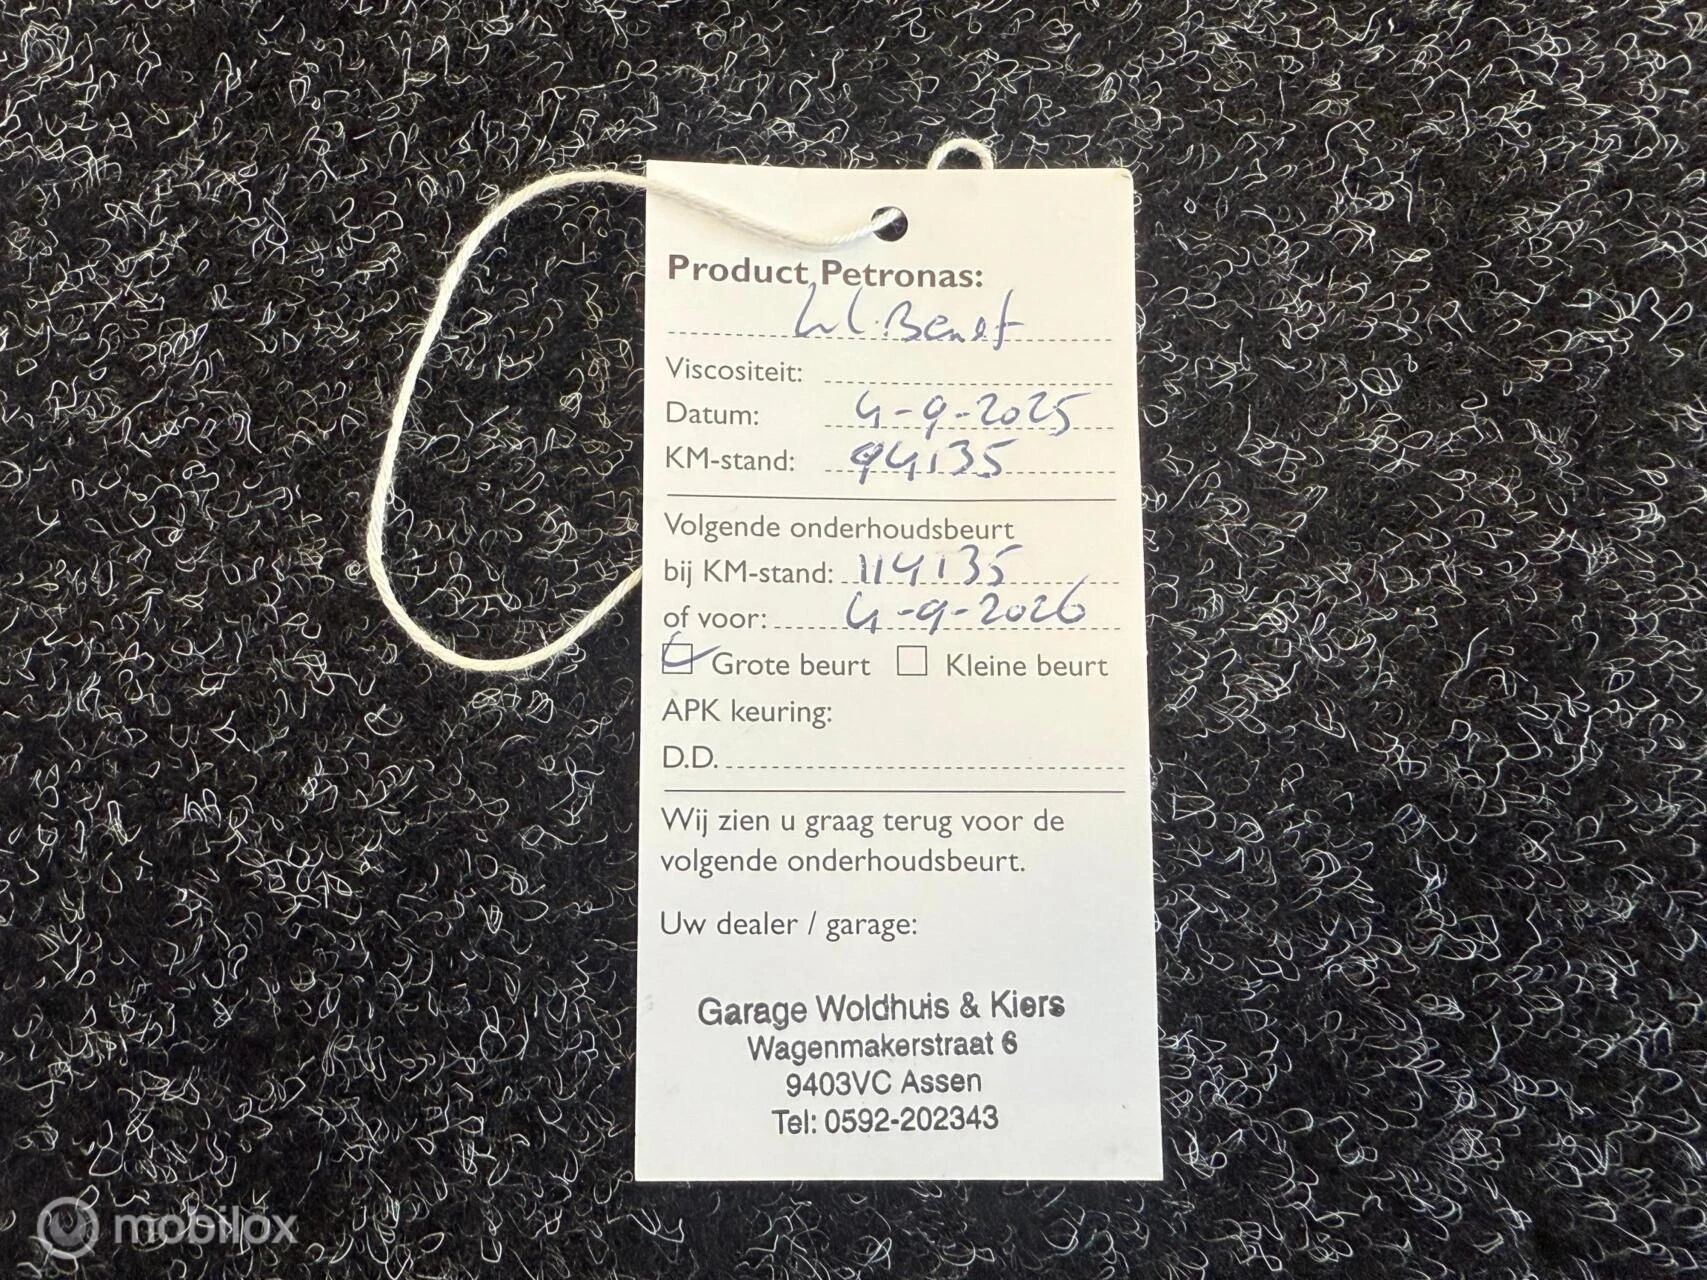 Product Petronas:
Viscositeit:
Datum: 4-9-2025
KM-stand: 94135
Volgende onderhoudsbeurt
bij KM-stand: 114135
of voor: 4-9-2026
Grote beurt Kleine beurt
APK keuring:
D.D.
Wij zien u graag terug voor de
volgende onderhoudsbeurt.
Uw dealer / garage:
Garage Woldhuis & Kiers
Wagenmakerstraat 6
9403VC Assen
Tel: 0592-202343
mobilox